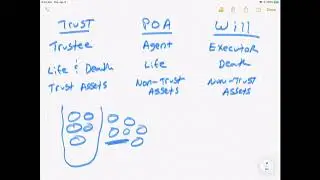 Trust POA Will
Trustee Agent Executor
Life & Death Life Death
Trust Assets Non-Trust Assets Non-Trust Assets